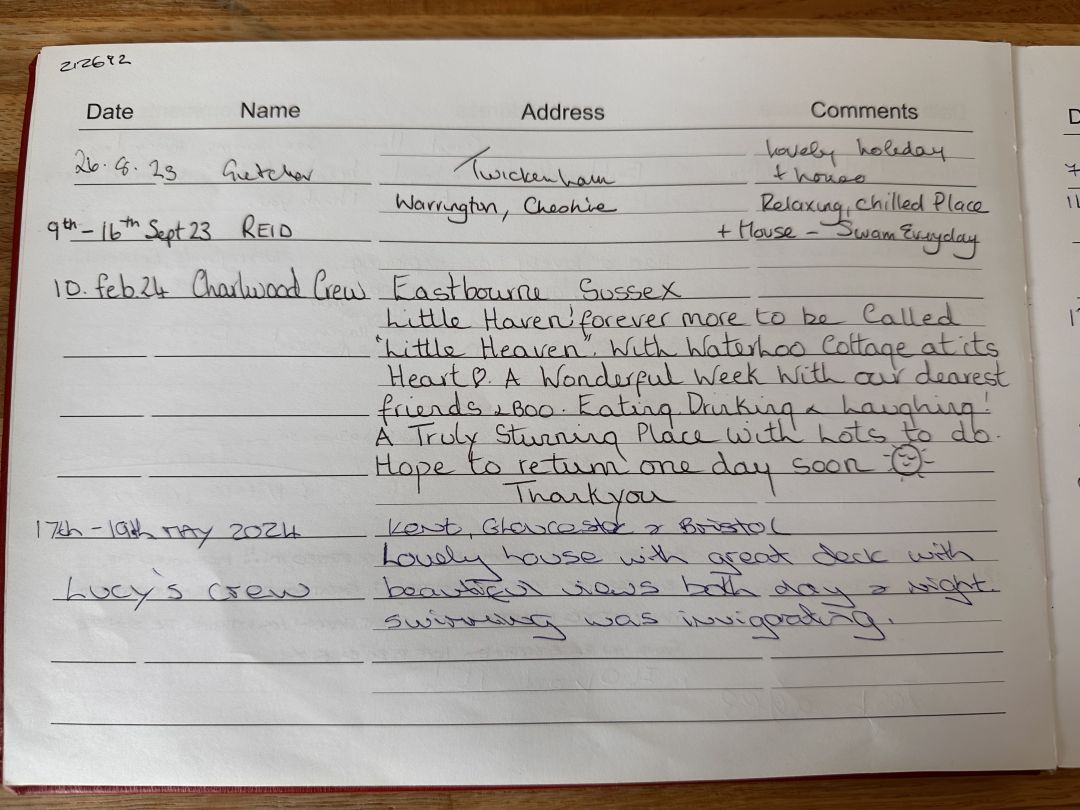 212692
Date Name Address Comments
Lovely holiday
26.8.23 Twickenham + house
Warrington, Cheshire Relaxing, chilled Place
9th – 16th Sept 23 REID + House – Swam Everyday
10. feb.24 Charlwood Crew Eastbourne Sussex
Little Haven' forever more to be Called
"Little Heaven". With Waterhoo Cottage at its
Heart ♡. A Wonderful Week With our dearest
friends & Boo. Eating, Drinking & Laughing!
A Truly Stunning Place with Lots to do.
Hope to return one day soon
Thankyou
17th – 19th MAY 2024 Kent, Gloucester & Bristol
Lovely house with great deck with
Lucy's crew beautiful views both day & night.
swimming was invigorating.
D
7
11
1